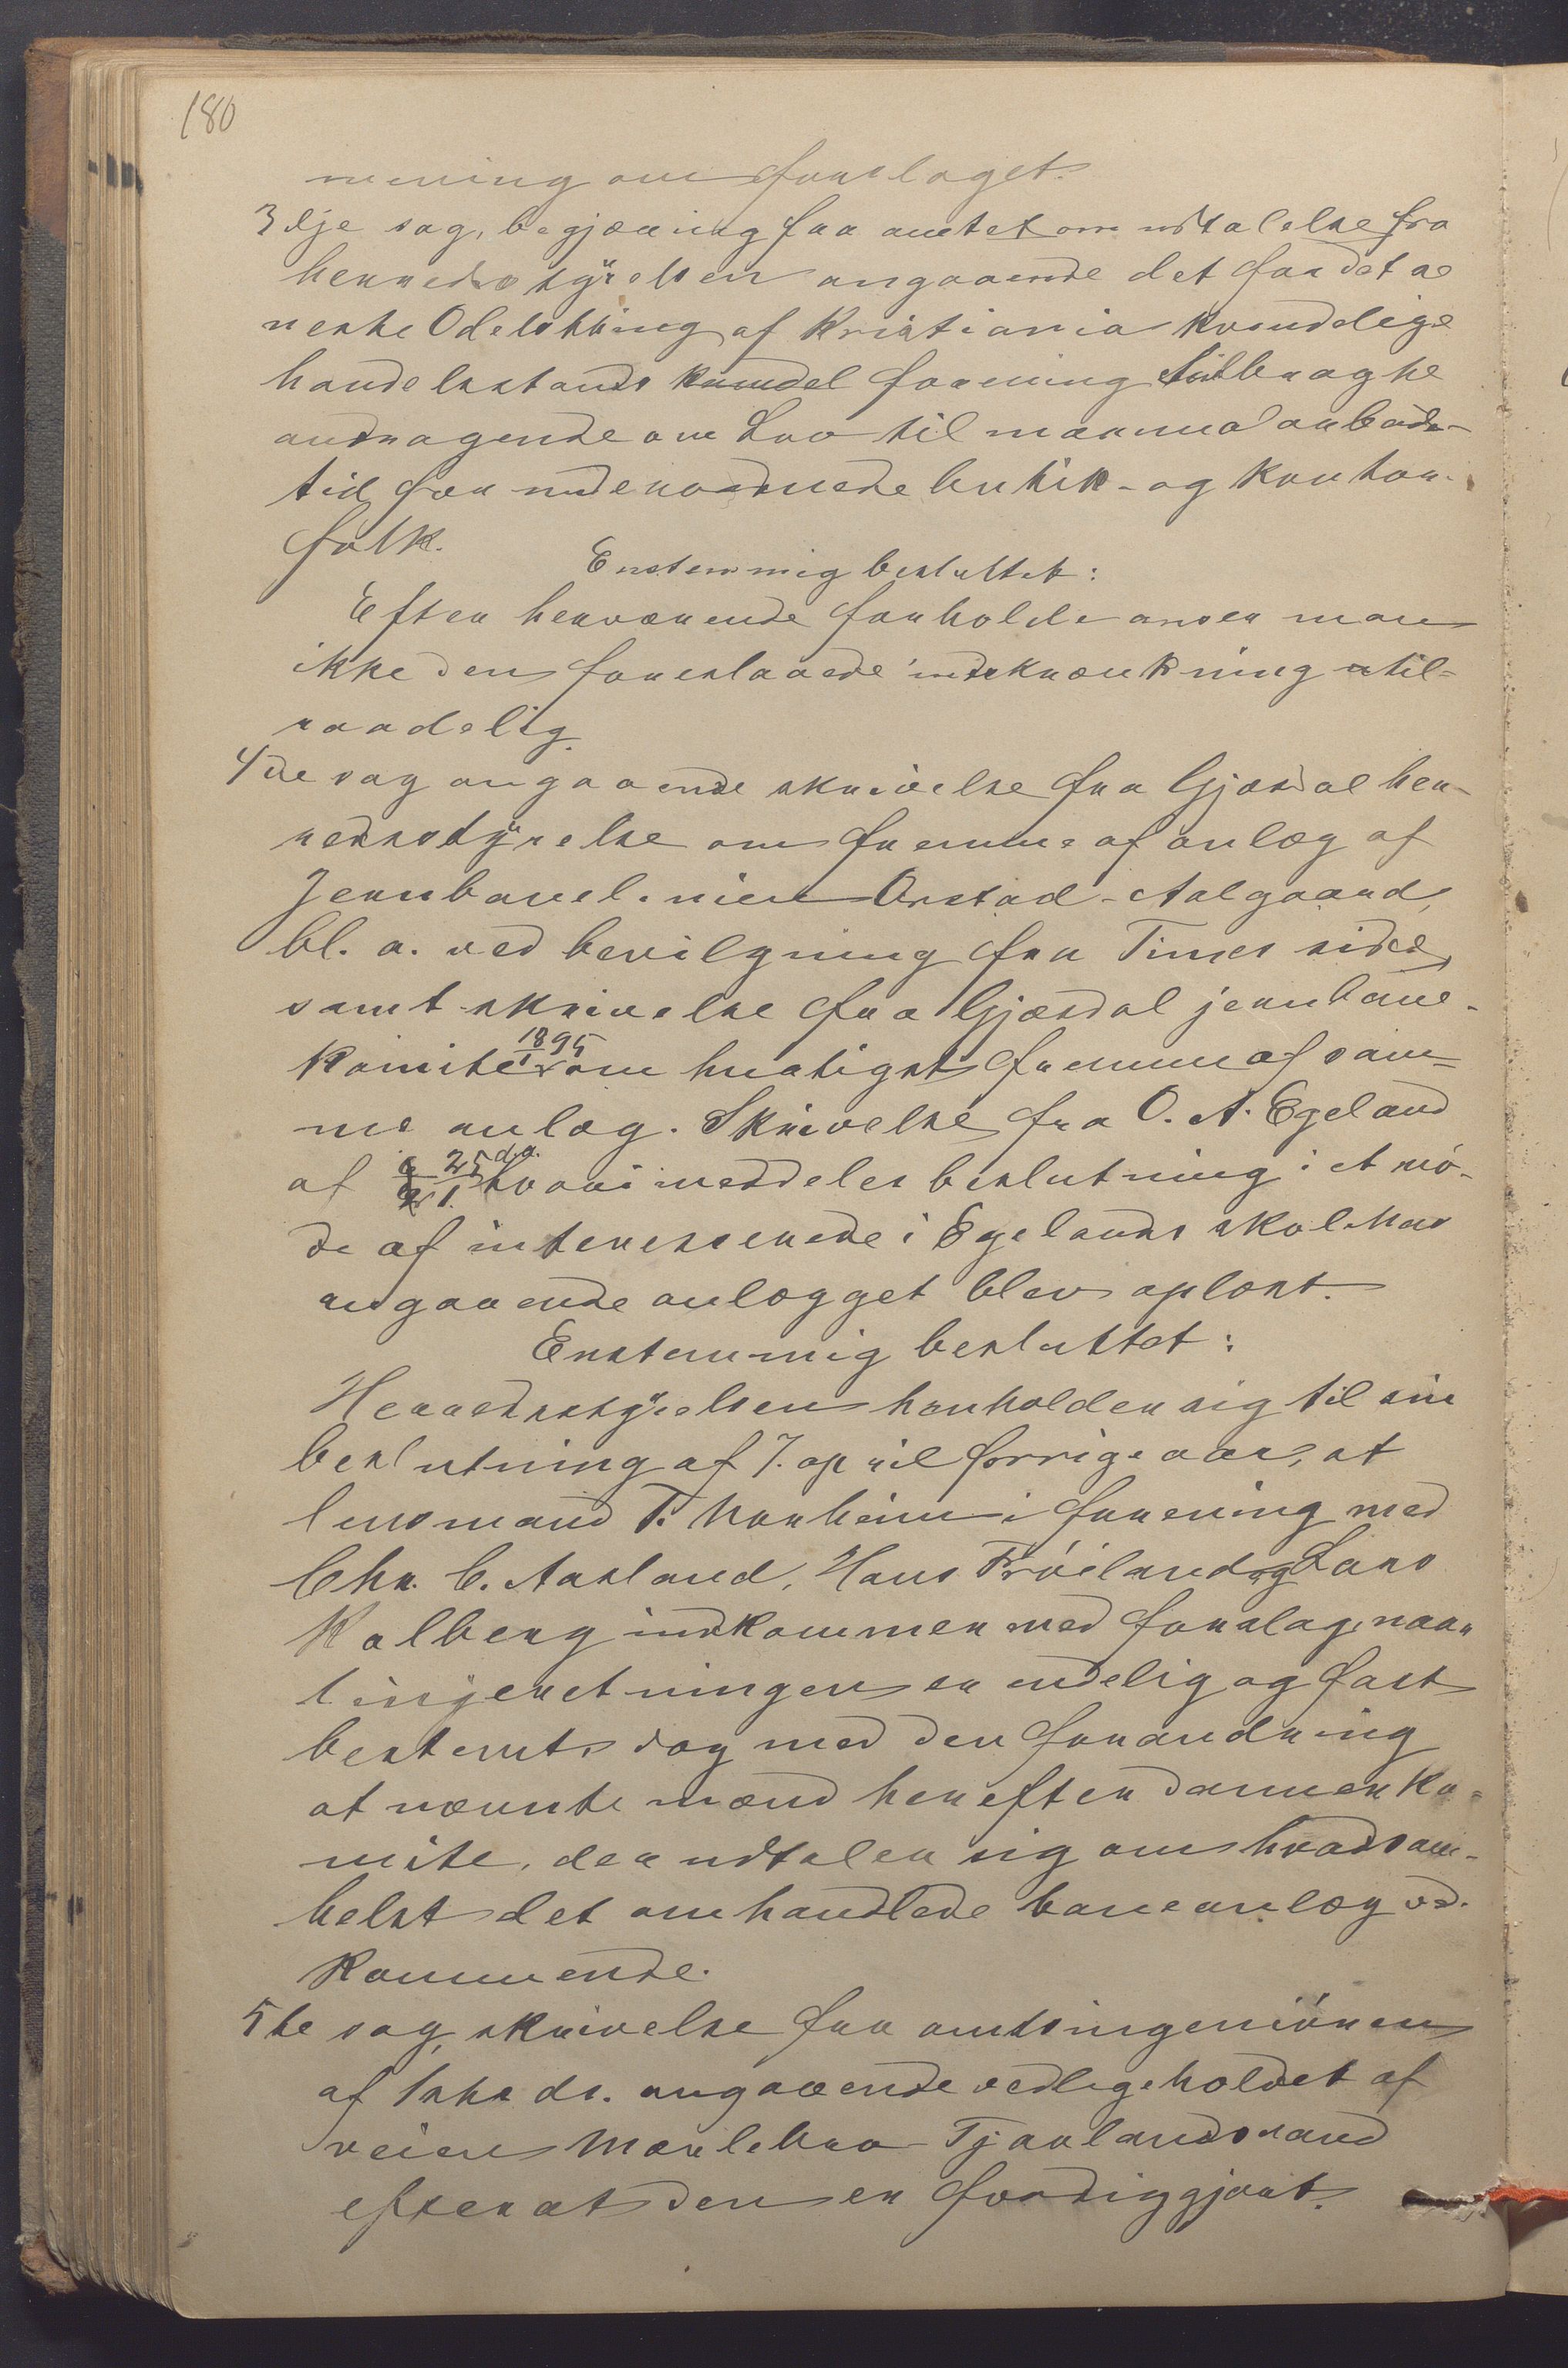 180
mening om forslaget.
3dje sag, begjæring fra amtet om udtalelse fra
herredsstyrelsen angaaende det for det æ
neste Odelsthing af Kristiania kvindelige
handelsstands forening fribragte
andragende om Lov til normal arbeids-
tid for underordnede butik- og kontor-
folk.
Enstemmig besluttet:
Efter herværende forholde anser man
ikke den foreslaaede indskrænkning til-
raadelig.
4de sag angaaende skrivelse fra Gjæsdal her-
redsstyrelse om fremme af anlæg af
Jernbanelinien Orstad-Aalgaard,
bl. a. ved bevilgning fra Times side,
samt skrivelse fra Gjæsdal jernbane-
komite 1895 om hurtigst fremme af sam-
me anlæg. Skrivelse fra O. A. Egeland
af 25/1 d.a. hvori meddeles beslutning i et mö-
de af interesserede i Egelands skolehus
angaaende anlægget blev oplæst.
Enstemmig besluttet:
Herredsstyrelsen henholder sig til sin
beslutning af 7. april forrige aar, at
lensmand T. Norheim i forening med
Chr. C. Aasland, Hans Fröiland og Lars
Kalberg indkommer med forslag, naar
linjeretningen er endelig og fast
bestemt, dog med den forandring
at nævnte mænd herefter danner ko-
mite, der udtaler sig om hvadsom-
helst det omhandlede baneanlæg ved-
kommende.
5te sag, skrivelse fra amtsingeniören
af 1ste ds. angaaende vedligeholdet af
veien Mælebro-Tjaalandsvand
efterat den er færdiggjort.